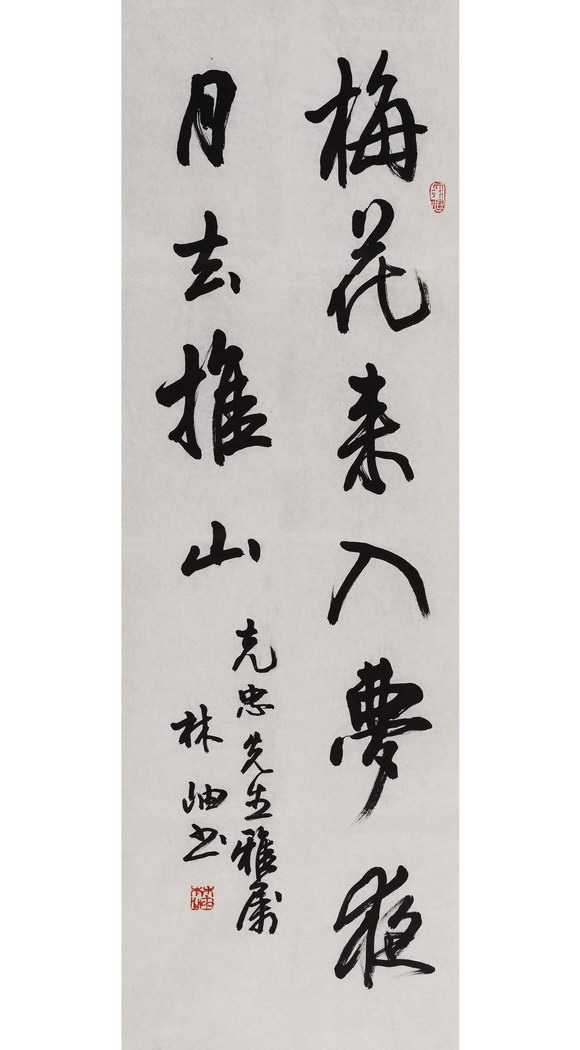 梅花来入夢夜
月去推山
克忠先生雅属
林岫书